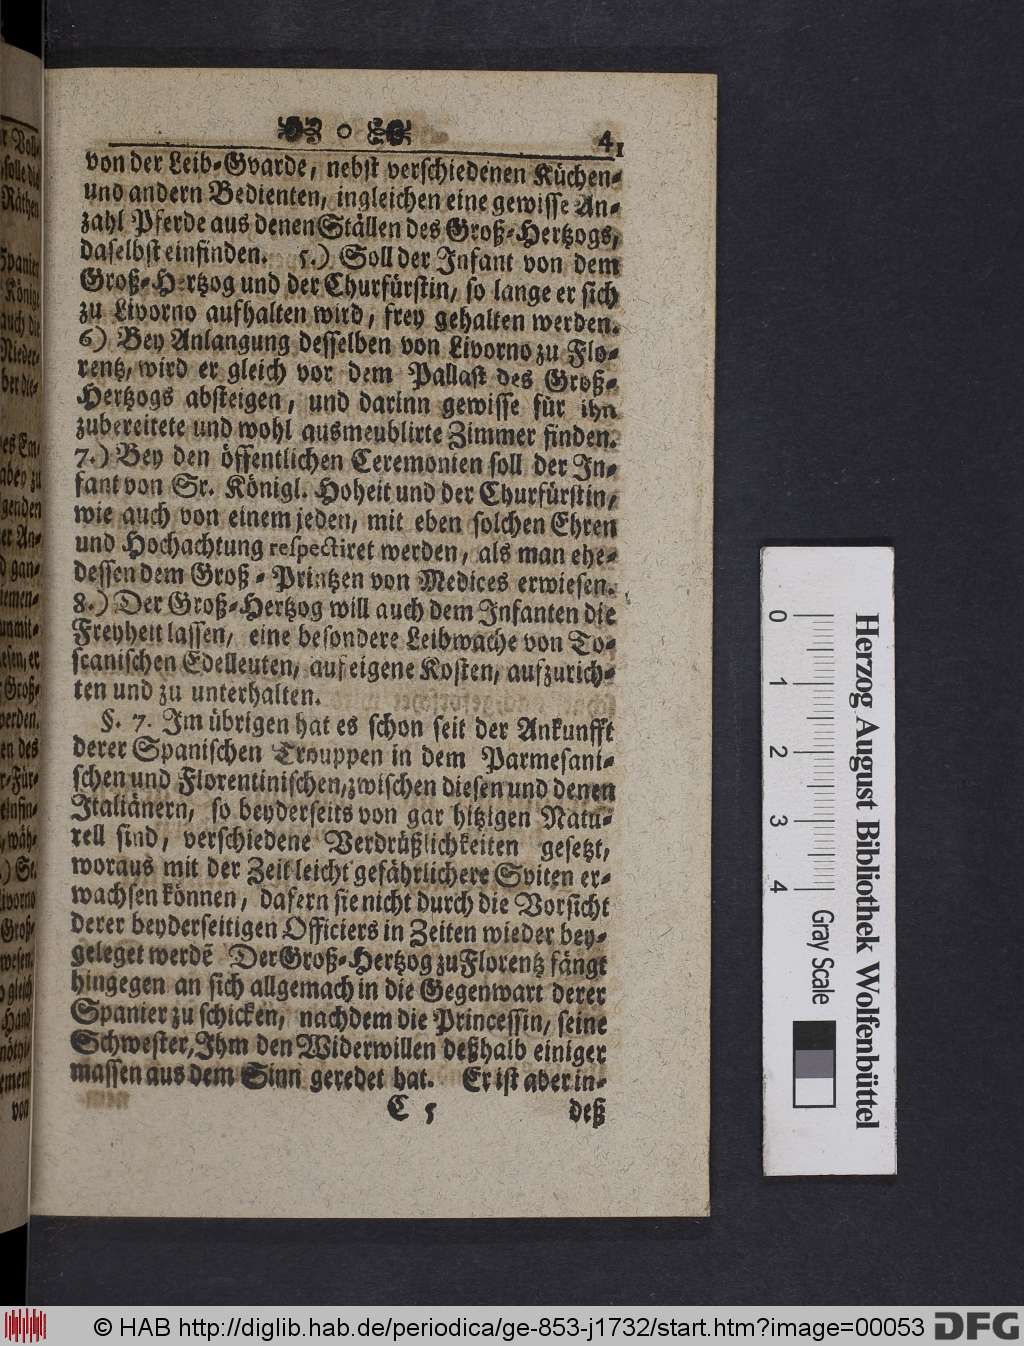 41
von der Leib-Gvarde, nebst verschiedenen Küchen-
und andern Bedienten, ingleichen eine gewisse An-
zahl Pferde aus denen Ställen des Groß-Hertzogs,
daselbst einfinden. 5.) Soll der Infant von dem
Groß-Hertzog und der Churfürstin, so lange er sich
zu Livorno aufhalten wird, frey gehalten werden.
6) Bey Anlangung desselben von Livorno zu Flo-
rentz, wird er gleich vor dem Pallast des Groß-
Hertzogs absteigen, und darinn gewisse für ihn
zubereitete und wohl ausmeublirte Zimmer finden.
7.) Bey den öffentlichen Ceremonien soll der In-
fant von Sr. Königl. Hoheit und der Churfürstin,
wie auch von einem jeden, mit eben solchen Ehren
und Hochachtung respectiret werden, als man ehe-
dessen dem Groß-Printzen von Medices erwiesen.
8.) Der Groß-Hertzog will auch dem Infanten die
Freyheit lassen, eine besondere Leibwache von To-
scanischen Edelleuten, auf eigene Kosten, aufzurich-
ten und zu unterhalten.
§. 7. Im übrigen hat es schon seit der Ankunfft
derer Spanischen Trouppen in dem Parmesani-
schen und Florentinischen, zwischen diesen und denen
Italiänern, so beyderseits von gar hitzigen Natu-
rell sind, verschiedene Verdrüßlichkeiten gesetzt,
woraus mit der Zeit leicht gefährlichere Sviten er-
wachsen können, dafern sie nicht durch die Vorsicht
derer beyderseitigen Officiers in Zeiten wieder bey-
geleget werdē Der Groß-Hertzog zu Florentz fängt
hingegen an sich allgemach in die Gegenwart derer
Spanier zu schicken, nachdem die Princessin, seine
Schwester, Ihm den Widerwillen deßhalb einiger
massen aus dem Sinn geredet hat. Er ist aber in-
C 5 deß
0 1 2 3 4
Gray Scale
Herzog August Bibliothek Wolfenbüttel
© HAB http://diglib.hab.de/periodica/ge-853-j1732/start.htm?image=00053
DFG